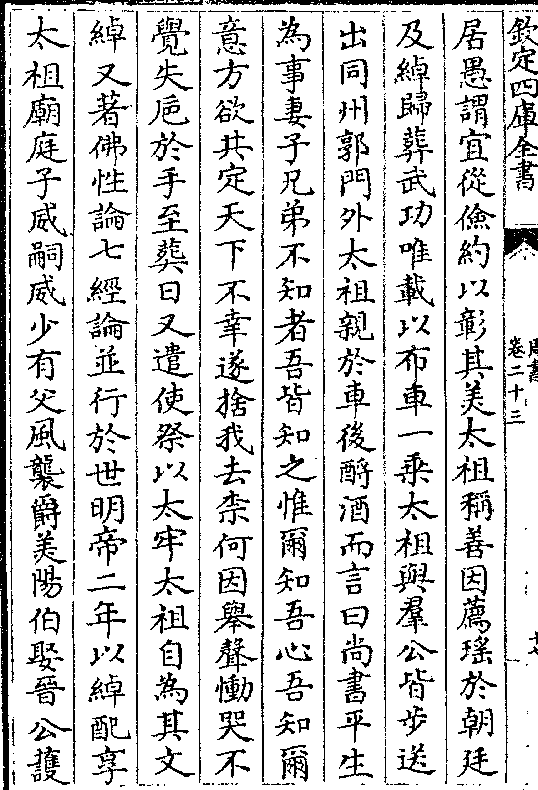 欽定四庫全書
周書
卷二十三
居愚謂宜從儉約以彰其美太祖稱善因薦瑤於朝廷
及綽歸葬武功唯載以布車一乗太祖與羣公皆步送
出同州郭門外太祖親於車後酹酒而言曰尚書平生
為事妻子兄弟不知者吾皆知之惟爾知吾心吾知爾
意方欲共定天下不幸遂捨我去柰何因舉聲慟哭不
覺失巵於手至葬日又遣使祭以太牢太祖自為其文
綽又著佛性論七經論並行於世明帝二年以綽配享
太祖廟庭子威嗣威少有父風襲爵美陽伯娶晉公護